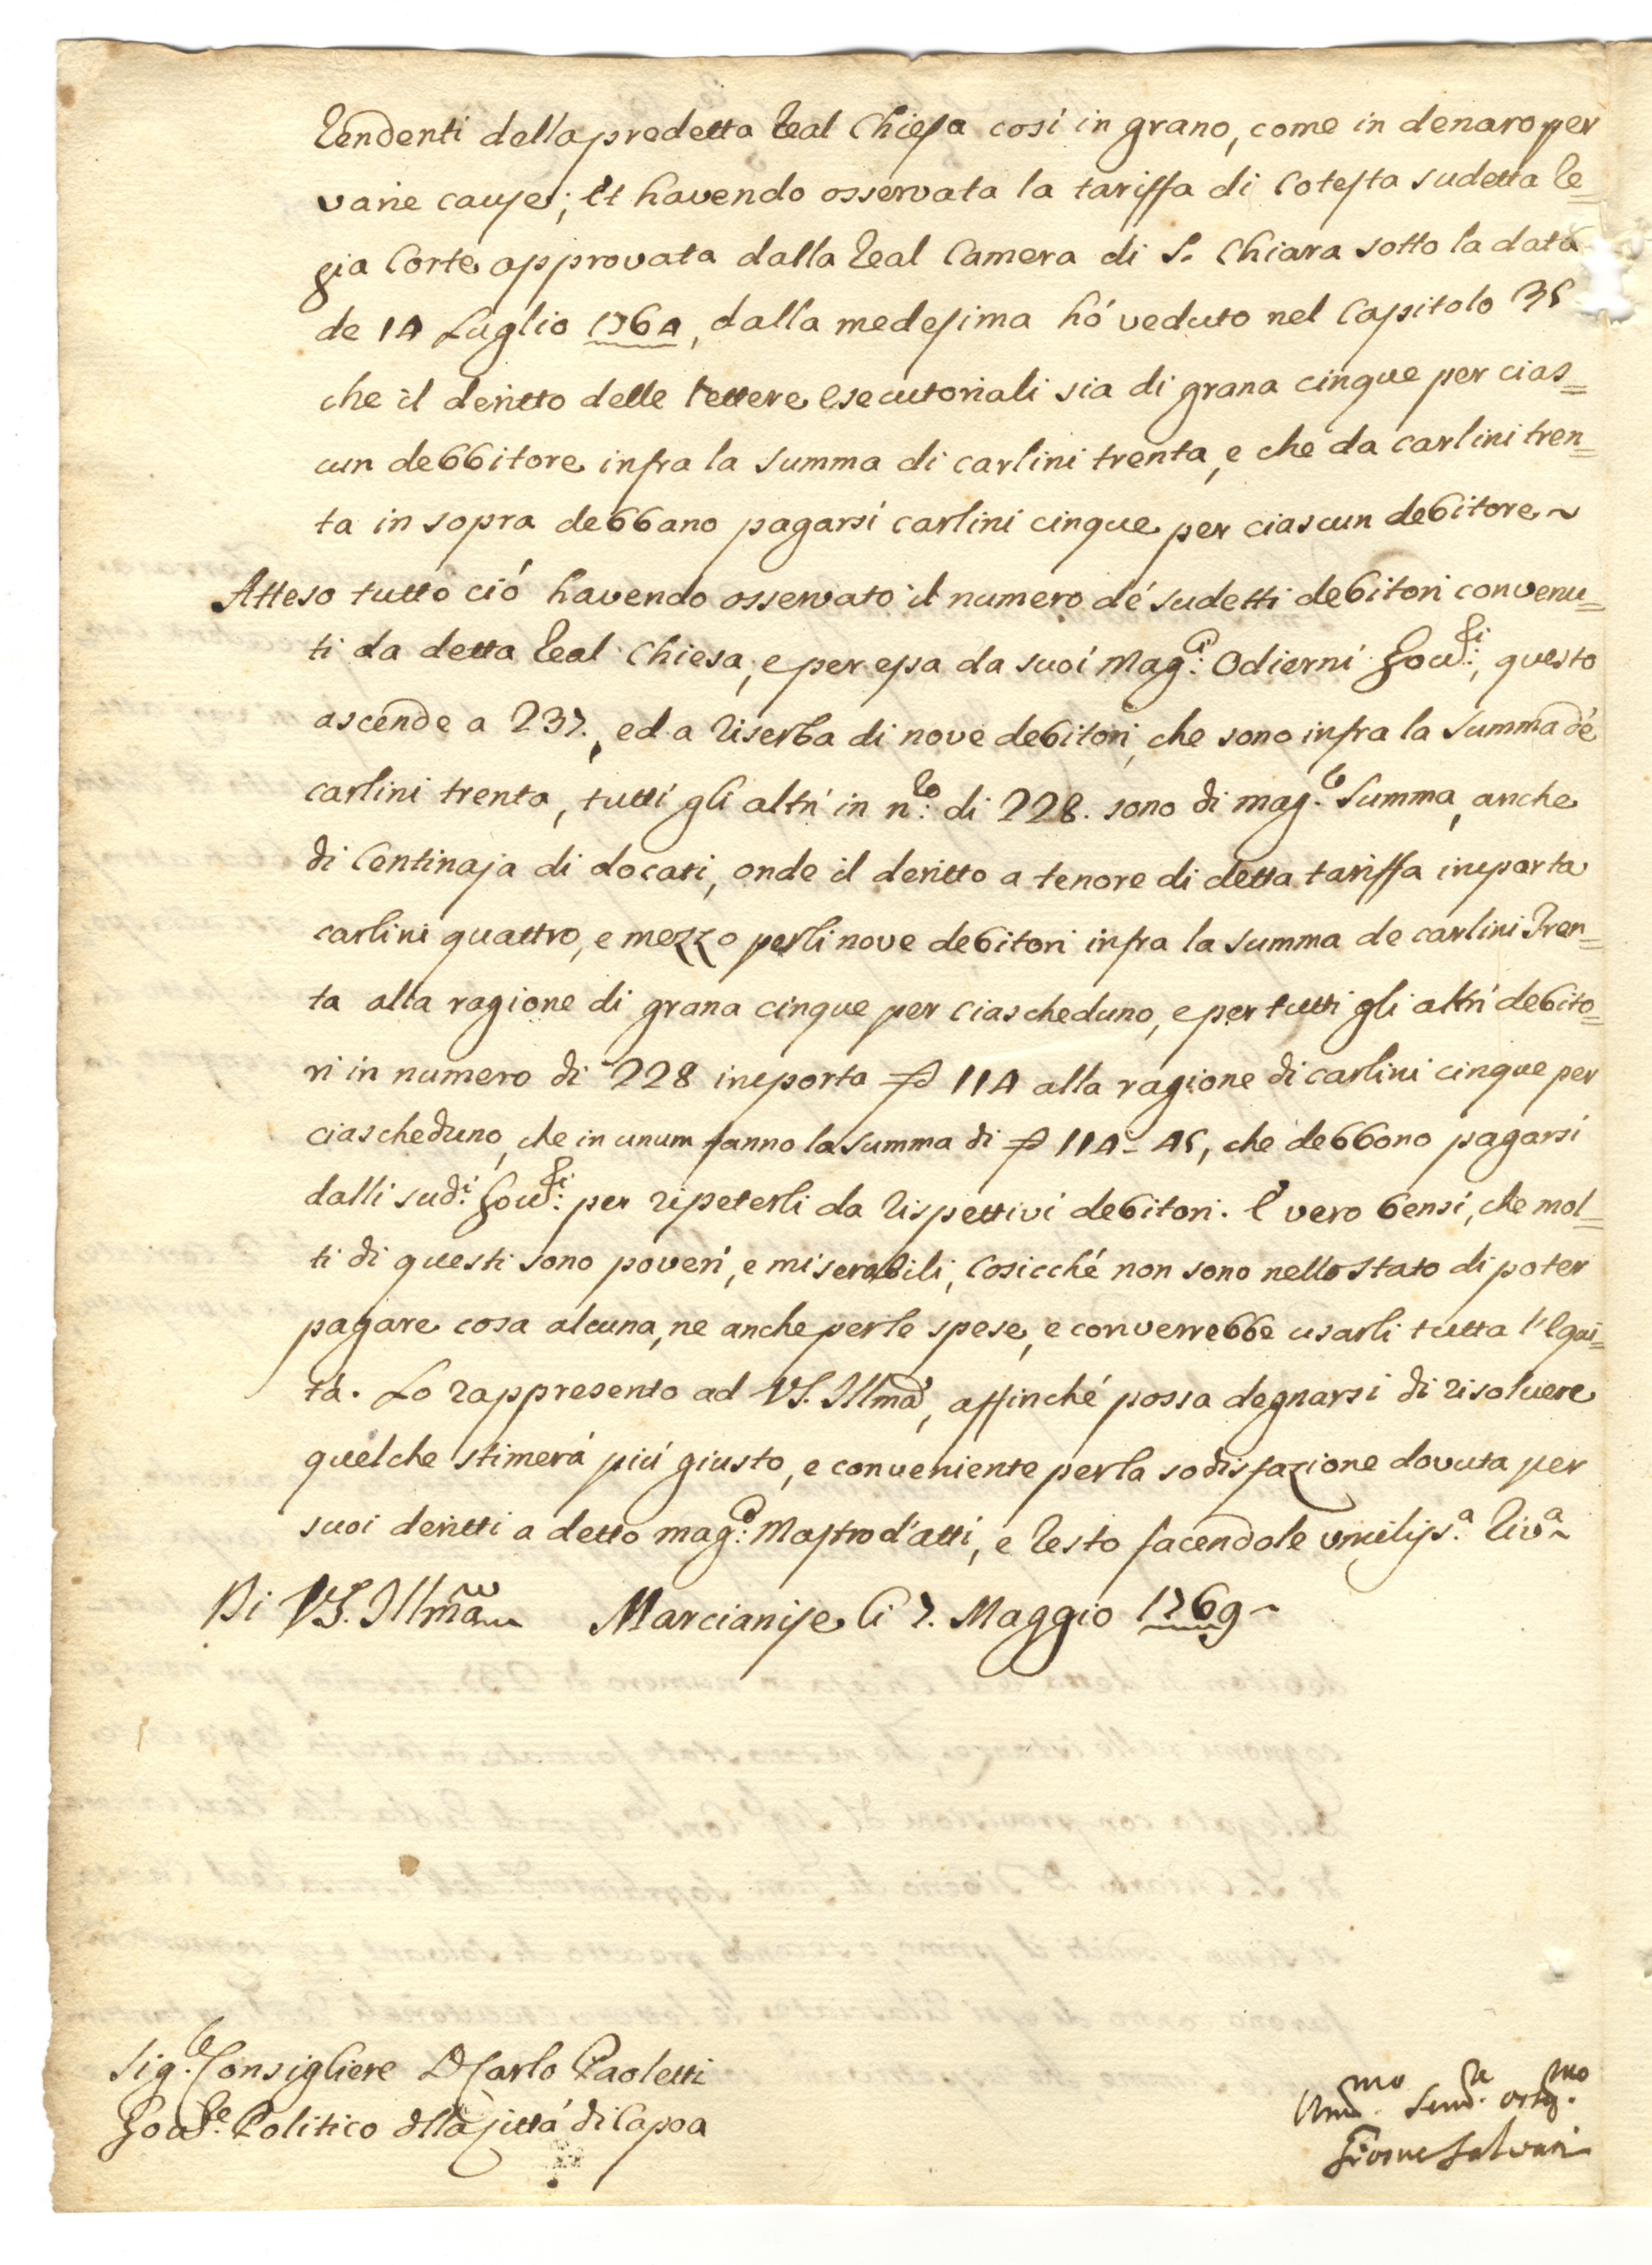 Rendenti della predetta Real Chiesa così in grano, come in denaro per
varie cause; Et havendo osservata la tariffa di Cotesta sudetta Re=
gia Corte approvata dalla Real Camera di S. Chiara sotto la data
de 14 Luglio 1764, dalla medesima hò veduto nel Capitolo 35
che il deritto delle lettere esecutoriali sia di grana cinque per cias=
cun debbitore infra la summa di carlini trenta, e che da carlini tren=
ta in sopra debbano pagarsi carlini cinque per ciascun debitore~
Atteso tutto ciò havendo osservato il numero dè sudetti debitori convenu=
ti da detta Real Chiesa, e per essa da suoi Mag.ci Odierni Gov.ri, questo
ascende a 237., ed a riserba di nove debitori, che sono infra la summa dè
carlini trenta, tutti gli altri in n.ro di 228. sono di mag.re summa, anche
di Centinaja di docati, onde il deritto a tenore di detta tariffa importa
carlini quattro, e mezzo perli nove debitori infra la summa de carlini tren=
ta alla ragione di grana cinque per ciascheduno, e per tutti gli altri debito=
ri in numero di 228 importa D 114 alla ragione di carlini cinque per
ciascheduno, che in unum fanno la summa di D 114 - 45, che debbono pagarsi
dalli sud.i Gov.ri per ripeterli da rispettivi debitori. È vero bensì, che mol=
ti di questi sono poveri, e miserabili, cosicché non sono nello stato di poter
pagare cosa alcuna, ne anche perle spese, e converrebbe usarli tutta l'Equi=
tà. Lo rappresento ad VS. Illma, affinché possa degnarsi di risolvere
quelche stimerà più giusto, e conveniente perla sodisfazione dovuta per
suoi deritti a detto mag.co Mastrod'atti, e resto facendole umiliss.a riv.a
Di VS. Illma Marcianise li 7. Maggio 1769~
Sig.re Consigliere D Carlo Paoletti
Gov.re Politico della Città di Capoa
Um.mo Serv.re obbg.mo